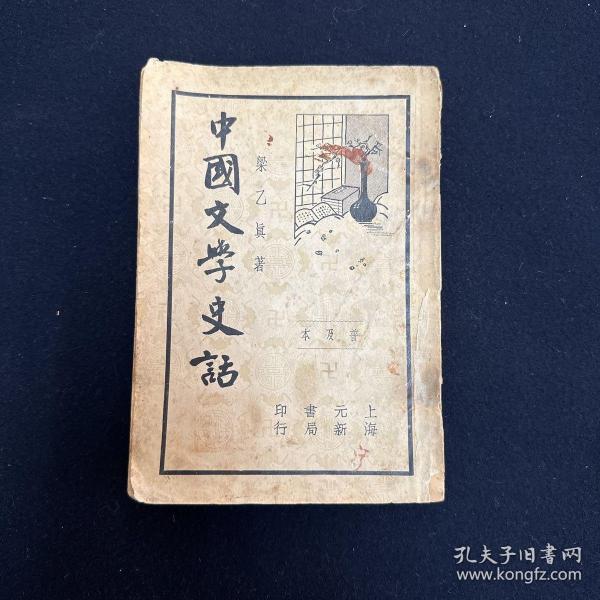 中國文學史話
梁乙眞著
普及本
上海
元新
書局
印行
孔夫子旧書网
www.kongfz.com